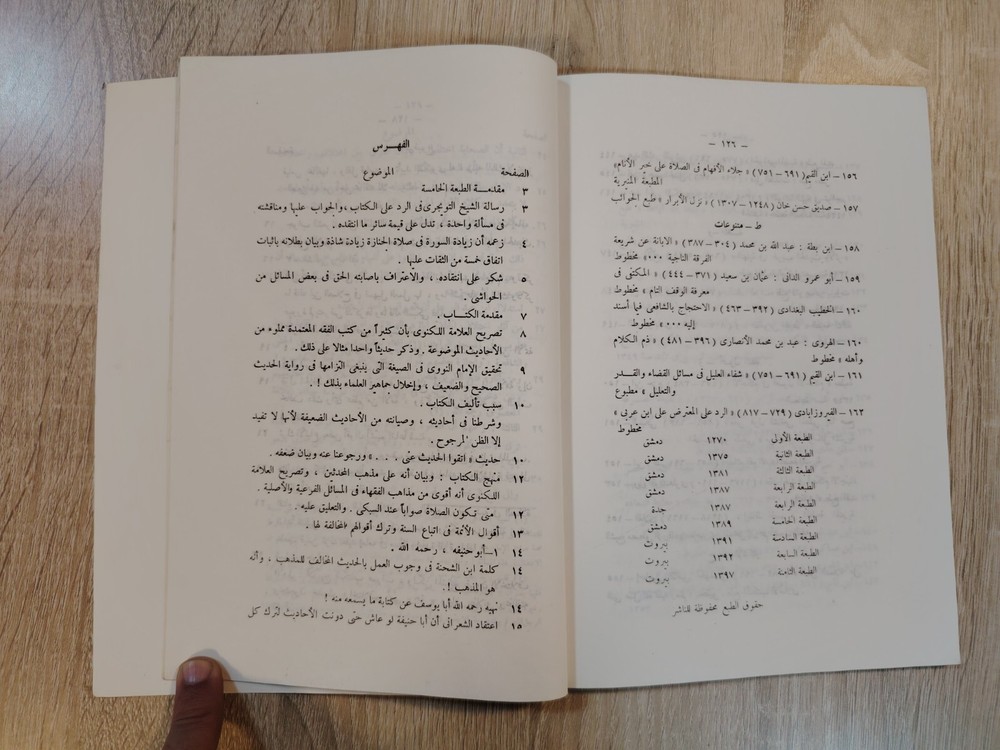 – ١٢٦ –
١٥٦ – ابن القيم (٦٩١ – ٧٥١) « جلاء الأفهام فى الصلاة على خير الأنام»
المطبعة المنيرية
١٥٧ – صديق حسن خان (١٢٤٨ – ١٣٠٧) « نزل الأبرار » طبع الجوائب
ط – متنوعات
١٥٨ – ابن بطة : عبد الله بن محمد (٣٠٤ – ٣٨٧) « الابانة عن شريعة
الفرقة الناجية ٠٠٠» مخطوط
١٥٩ – أبو عمرو الدانى : عثمان بن سعيد (٣٧١ – ٤٤٤) « المكتفى فى
معرفة الوقف التام » مخطوط
١٦٠ – الخطيب البغدادى (٣٩٢ – ٤٦٣) « الاحتجاج بالشافعى فيما أسند
إليه ٠٠٠ » مخطوط
١٦٠ – الهروى : عبد بن محمد الأنصارى (٣٩٦ – ٤٨١) « ذم الكلام
وأهله » مخطوط
١٦١ – ابن القيم (٦٩١ – ٧٥١) « شفاء العليل فى مسائل القضاء والقــدر
والتعليل » مطبوع
١٦٢ – الفيروزابادى (٧٢٩ – ٨١٧) « الرد على المعترض على ابن عربى »
مخطوط
الطبعة الأولى ١٢٧٠ دمشق
الطبعة الثانية ١٣٧٥ دمشق
الطبعة الثالثة ١٣٨١ دمشق
الطبعة الرابعة ١٣٨٧ دمشق
الطبعة الرابعة ١٣٨٧ جدة
الطبعة الخامسة ١٣٨٩ دمشق
الطبعة السادسة ١٣٩١ بيروت
الطبعة السابعة ١٣٩٢ بيروت
الطبعة الثامنة ١٣٩٧ بيروت
حقوق الطبع محفوظة للناشر
الفهــرس
الصفحة الموضوع
٣ مقدمــة الطبعة الخامسة
٣ رسالة الشيخ التويجرى فى الرد على الكتاب ، والجواب عليها ومناقشته
فى مسألة واحدة ، تدل على قيمة سائر ما انتقده .
٤ زعمه أن زيادة السورة فى صلاة الجنازة زيادة شاذة وبيان بطلانه باثبات
اتفاق خمسة من الثقات عليها .
٥ شكر على انتقاده ، والاعتراف باصابته الحق فى بعض المسائل من
الحواشى .
٧ مقدمة الكتــاب .
٨ تصريح العلامة اللكنوى بأن كثيراً من كتب الفقه المعتمدة مملوءه من
الأحاديث الموضوعة . وذكر حديثاً واحدا مثالا على ذلك .
٩ تحقيق الإمام النووى فى الصيغة التى ينبغى التزامها فى رواية الحديث
الصحيح والضعيف ، وإخلال جماهير العلماء بذلك ! .
١٠ سبب تأليف الكتاب .
وشرطنا فى أحاديثه ، وصيانته من الأحاديث الضعيفة لأنها لا تفيد
إلا الظن المرجوح .
١٠ حديث « اتقوا الحديث عنى . . . » ورجوعنا عنه وبيان ضعفه .
١٢ منهج الكتاب : وبيان أنه على مذهب المحدثين ، وتصريح العلامة
اللكنوى أنه أقوى من مذاهب الفقهاء فى المسائل الفرعية والأصلية .
١٢ متى تكون الصلاة صواباً عند السبكى . والتعليق عليه .
١٣ أقوال الأئمة فى اتباع السنة وترك أقوالهم المخالفة لها .
١٤ ١–أبو حنيفه ، رحمه الله .
١٤ كلمة ابن الشحنة فى وجوب العمل بالحديث المخالف للمذهب ، وأنه
هو المذهب ! .
١٤ نهيه رحمه الله أبا يوسف عن كتابة ما يسمعه منه !
١٥ اعتقاد الشعرانى أن أبا حنيفة لو عاش حتى دونت الأحاديث لترك كل